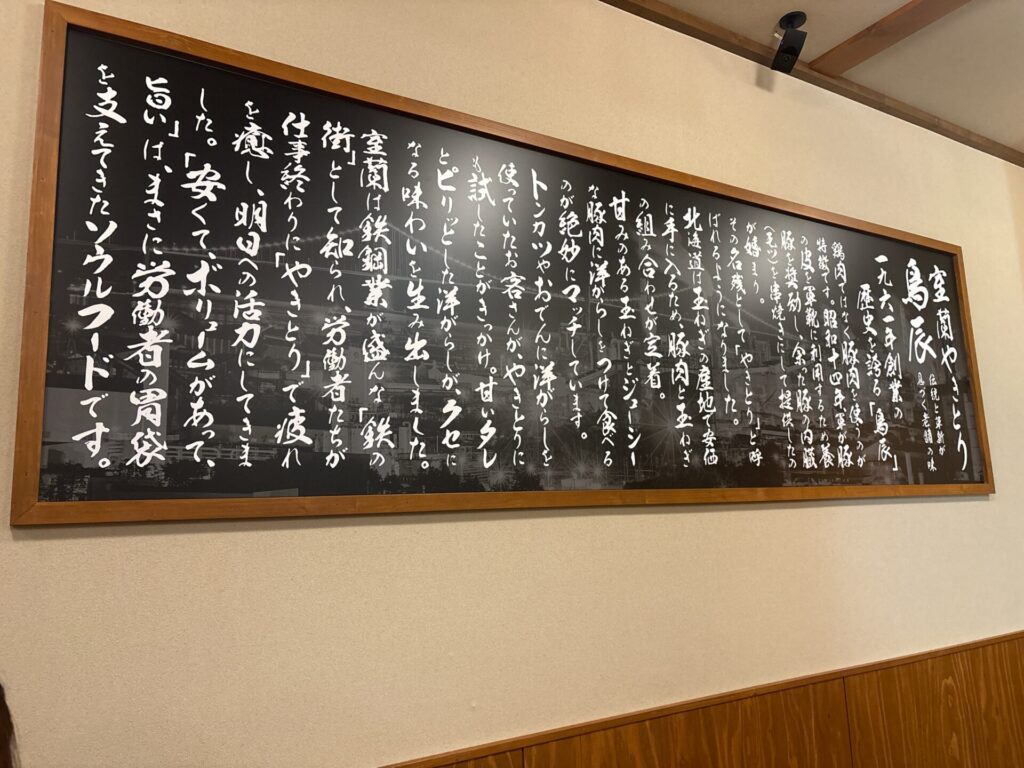 室蘭やきとり
伝統と革新が
息づく老舗の味
鳥辰
一九六一年創業の
歴史を誇る「鳥辰」
鶏肉ではなく豚肉を使うのが
特徴です。昭和十四年軍が豚
の皮を軍靴に利用するため養
豚を奨励し、余った豚の内臓
(モツ)を串焼きにして提供したの
が始まり。
その名残として、「やきとり」と呼
ばれるようになりました。
北海道は玉ねぎの産地で安価
に手に入るため、豚肉と玉ねぎ
の組み合わせが定着。
甘みのある玉ねぎとジューシー
な豚肉に洋がらしをつけて食べる
のが絶妙にマッチしています。
トンカツやおでんに洋がらしを
使っていたお客さんが、やきとりに
も試したことがきっかけ。甘いタレ
とピリッとした洋がらしがクセに
なる味わいを生み出しました。
室蘭は鉄鋼業が盛んな「鉄の
街」として知られ、労働者たちが
仕事終わりに「やきとり」で疲れ
を癒し、明日への活力にしてきま
した。「安くて、ボリュームがあって、
旨い」は、まさに労働者の胃袋
を支えてきたソウルフードです。